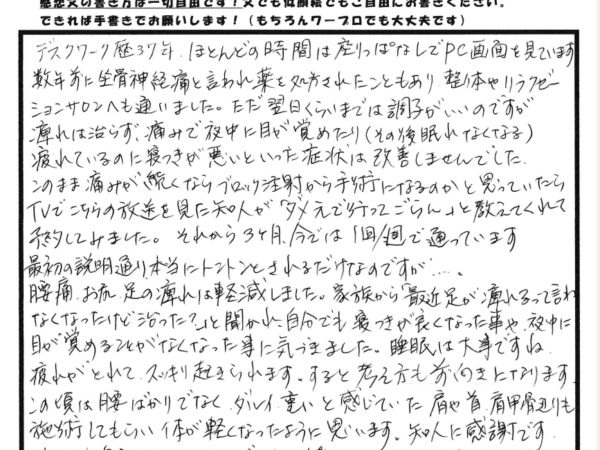 感想文の書き方は一切自由です！文でも似顔絵でもご自由にお書きください。
できれば手書きでお願いします！（もちろんワープロでも大丈夫です）
デスクワーク歴37年、ほとんどの時間は座りっぱなしでPC画面を見ています
数年前に坐骨神経痛と言われ薬を処方されたこともあり、整体やリラクゼー
ションサロンへも通いました。ただ翌日くらいまでは調子がいいのですが
痺れは治らず、痛みで夜中に目が覚めたり(その後眠れなくなる)
疲れているのに寝つきが悪いといった症状は改善しませんでした。
このまま痛みが続くならブロック注射から手術になるのかと思っていたら
TVでこちらの放送を見た知人が「ダメ元で行ってごらん」と教えてくれて
予約してみました。それから3ヶ月、今では1回/週で通っています
最初の説明通り本当にトントンとされるだけなのですが…。
腰痛、お尻、足の痺れは軽減しました。家族から「最近足が痺れるって言わ
なくなったけど治った？」と聞かれ、自分でも寝つきが良くなった事や、夜中に
目が覚めることがなくなった事に気づきました。睡眠は大事ですね
疲れがとれて、スッキリ起きられます。すると考え方も前向きになります。
この頃は腰ばかりでなく、ダルイ、重いと感じていた肩や首、肩甲骨辺りも
施術してもらい体が軽くなったように思います。知人に感謝です。